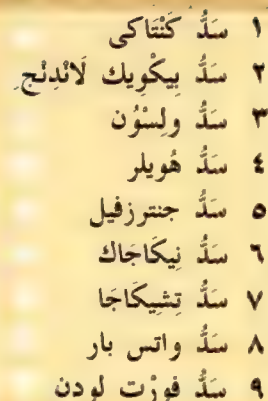 ١ سَدُّ كَنْتَاكى
٢ سَدُّ بِيكْوِيك لَانْدِنْج
٣ سَدُّ ولِسْوُن
٤ سَدُّ هُويلر
٥ سَدُّ جنترزفيل
٦ سَدُّ نِيكَاجَاك
٧ سَدُّ تِشِيكَاجَا
٨ سَدُّ واتس بار
٩ سَدُّ فورْت لودن